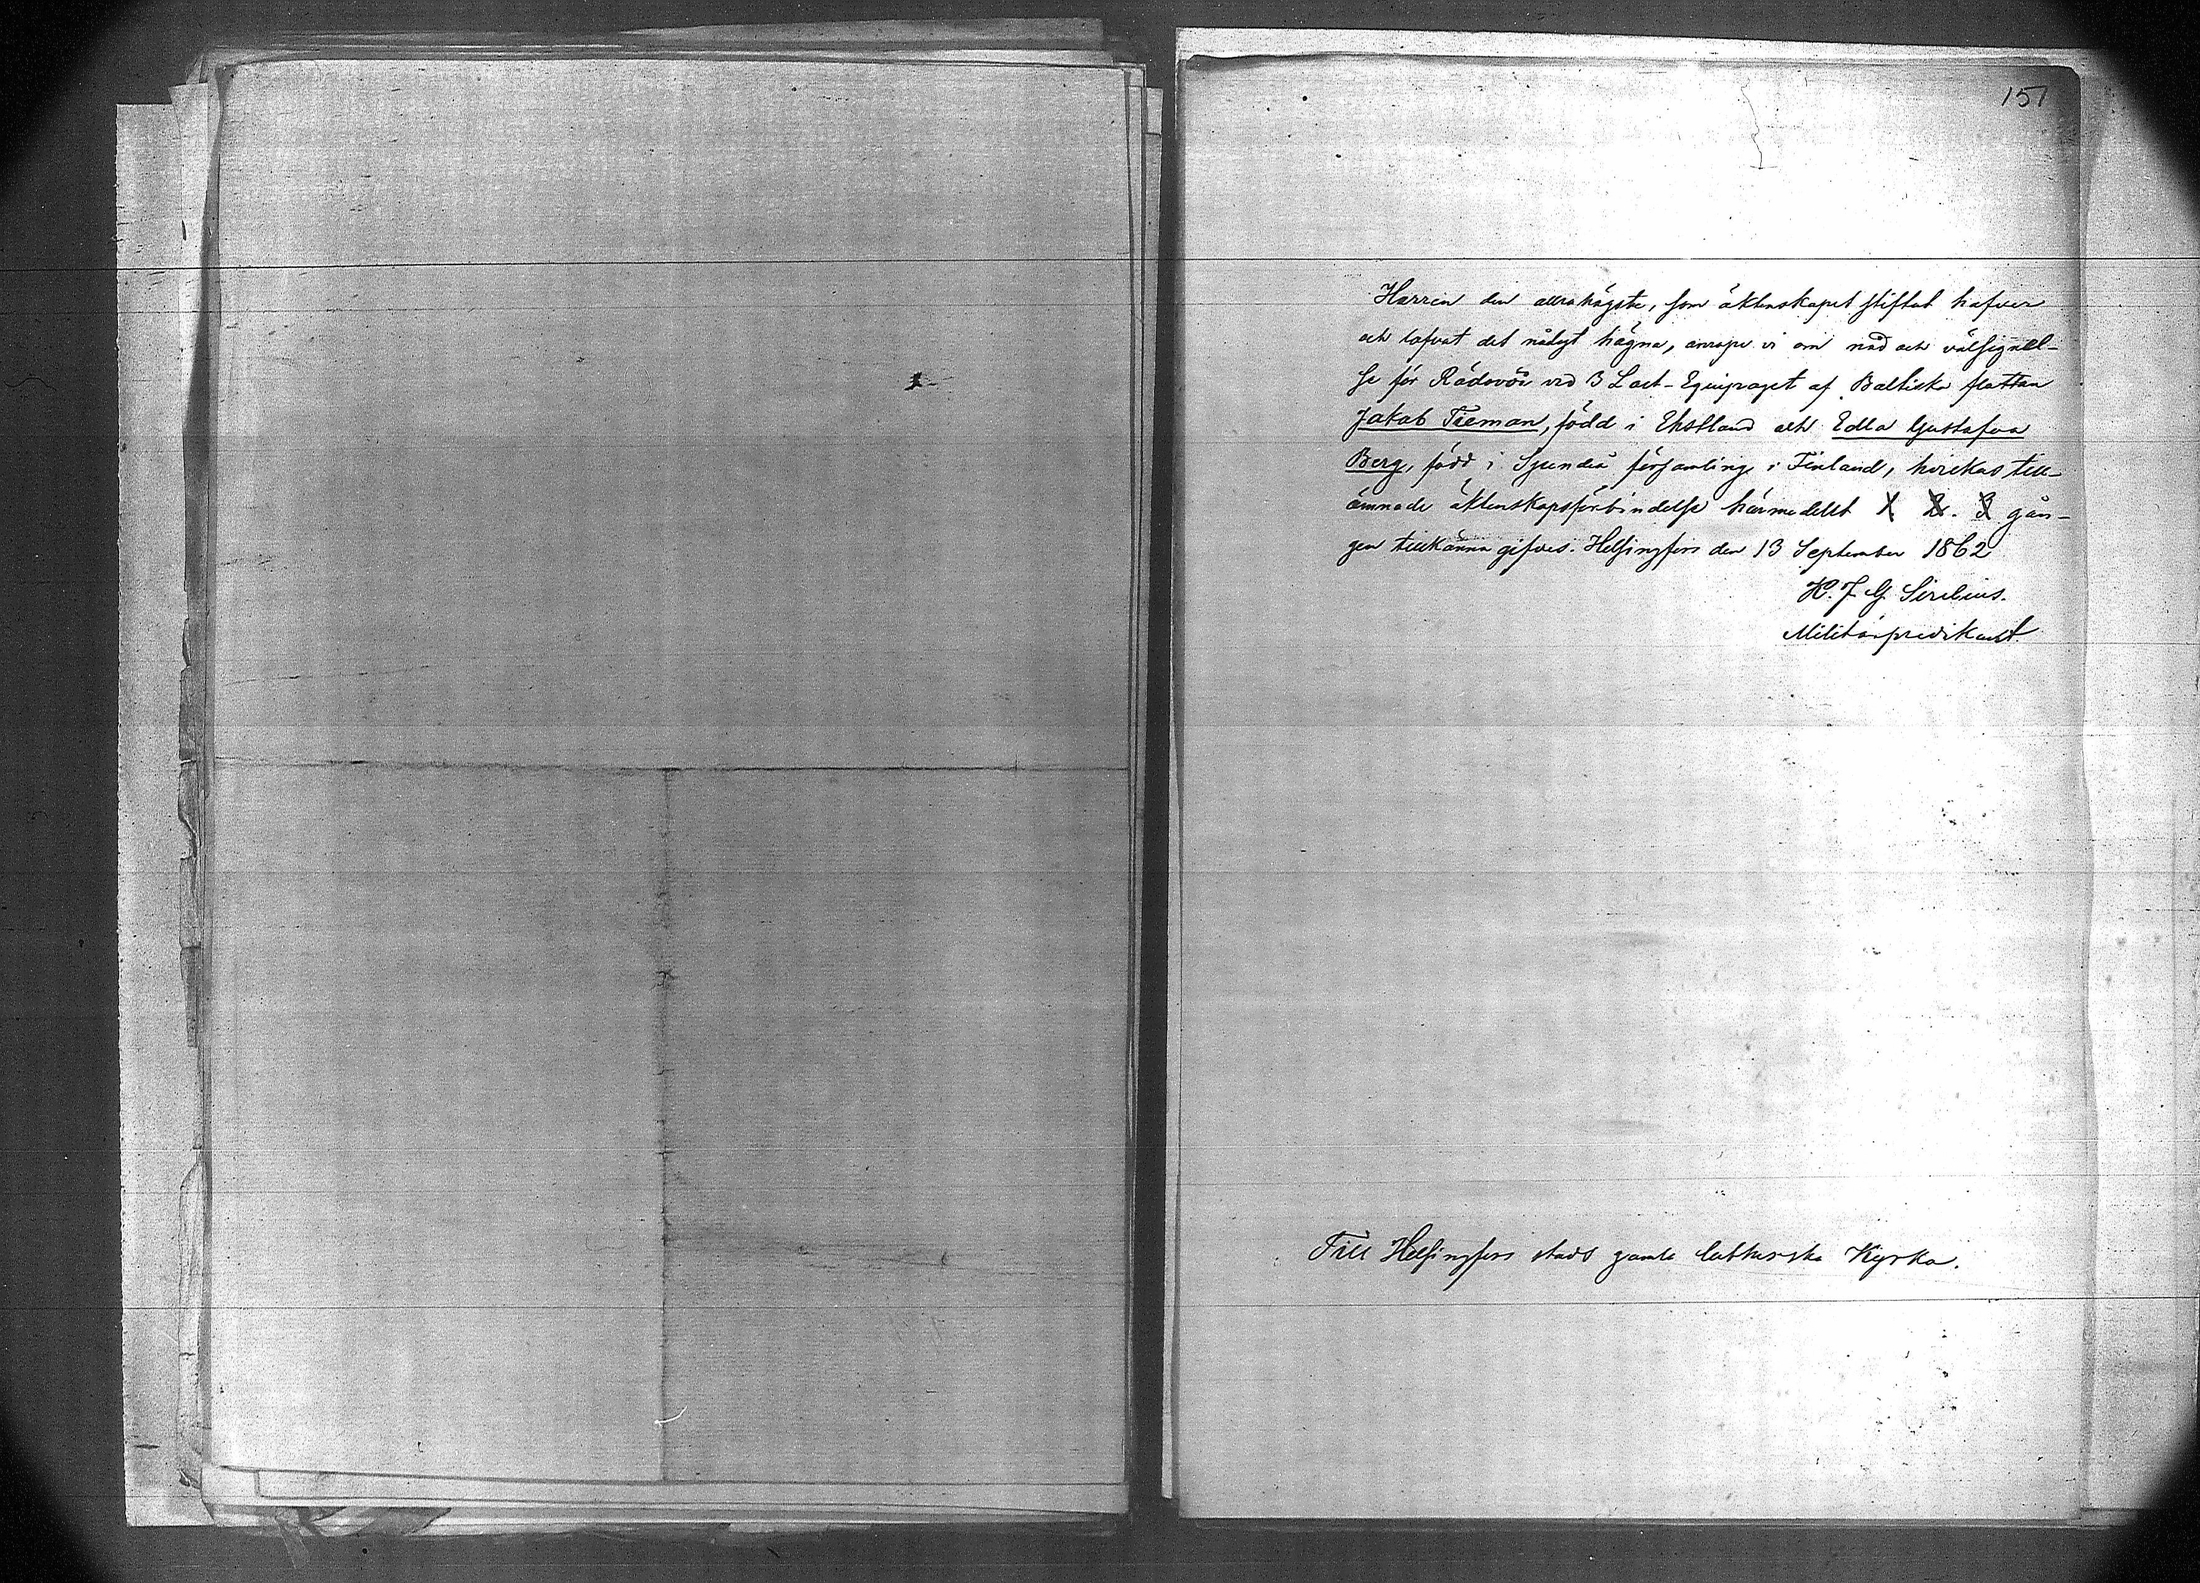 151
Herren den allrahögste, som äktenskapet stiftat hafver
och lofvat det nådigt hägna, anrope vi om nåd och välsignel-
se för Rådovoi vid 3 Last-Equipaget af Baltiska flottan
Jakob Tieman, född i Ehstland och Edla Gustafva
Berg, född i Sjundeå församling i Finland, hvilkas till-
ämnade äktenskapsförbindelse härmedelst 1 2. 3 gån-
gen tillkännagifves. Helsingfors den 13 September 1862
H. J. G. Sirelius.
Militärpredikant.
Till Helsingfors stads gamla lutherska Kyrka.